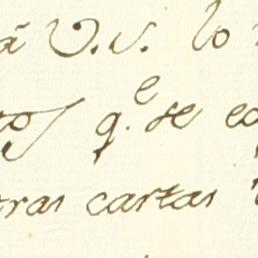 á V.S. lo
q.e se
tras cartas